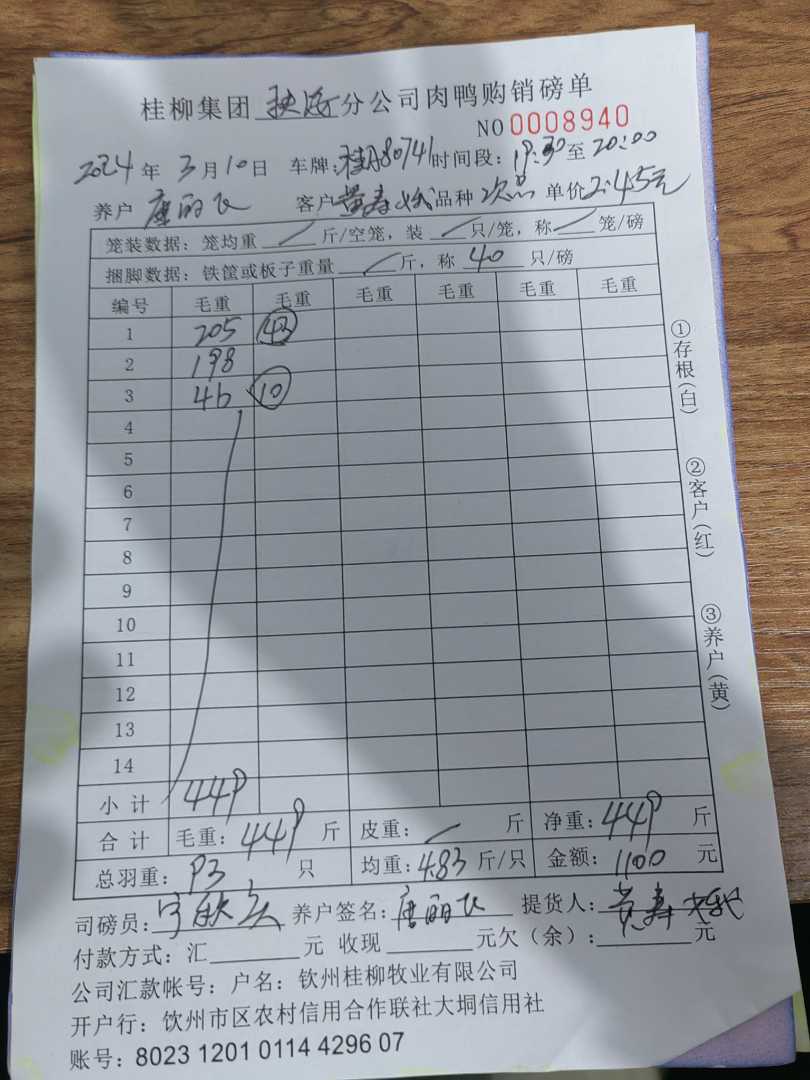 桂柳集团 分公司肉鸭购销磅单
NO 0008940
2024年3月10日 车牌:桂 80741 时间段:19:30至20:00
养户 唐丽飞 客户 黄寿 品种 次品 单价 2.45元
笼装数据:笼均重 / 斤/空笼,装 / 只/笼,称 / 笼/磅
捆脚数据:铁筐或板子重量 / 斤,称 40 只/磅
编号 毛重 毛重 毛重 毛重 毛重 毛重
1 205 43
2 198
3 46 10
4
5
6
7
8
9
10
11
12
13
14
小计 449
合计 毛重:449 斤 皮重: / 斤 净重:449 斤
总羽重:93 只 均重:4.83 斤/只 金额:1100 元
司磅员: 养户签名:唐丽飞 提货人:黄寿
付款方式:汇 元 收现 元欠(余): 元
公司汇款帐号:户名:钦州桂柳牧业有限公司
开户行:饮州市区农村信用合作联社大垌信用社
账号:8023 1201 0114 4296 07
①存根(白)
②客户(红)
③养户(黄)